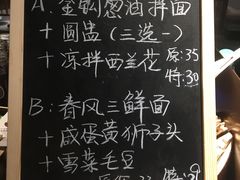 A. 葱油拌面
+ 圆盅（三选一）
+ 凉拌西兰花 原:35
特:30
B: 春风三鲜面
+ 咸蛋黄狮子头
+ 雪菜毛豆